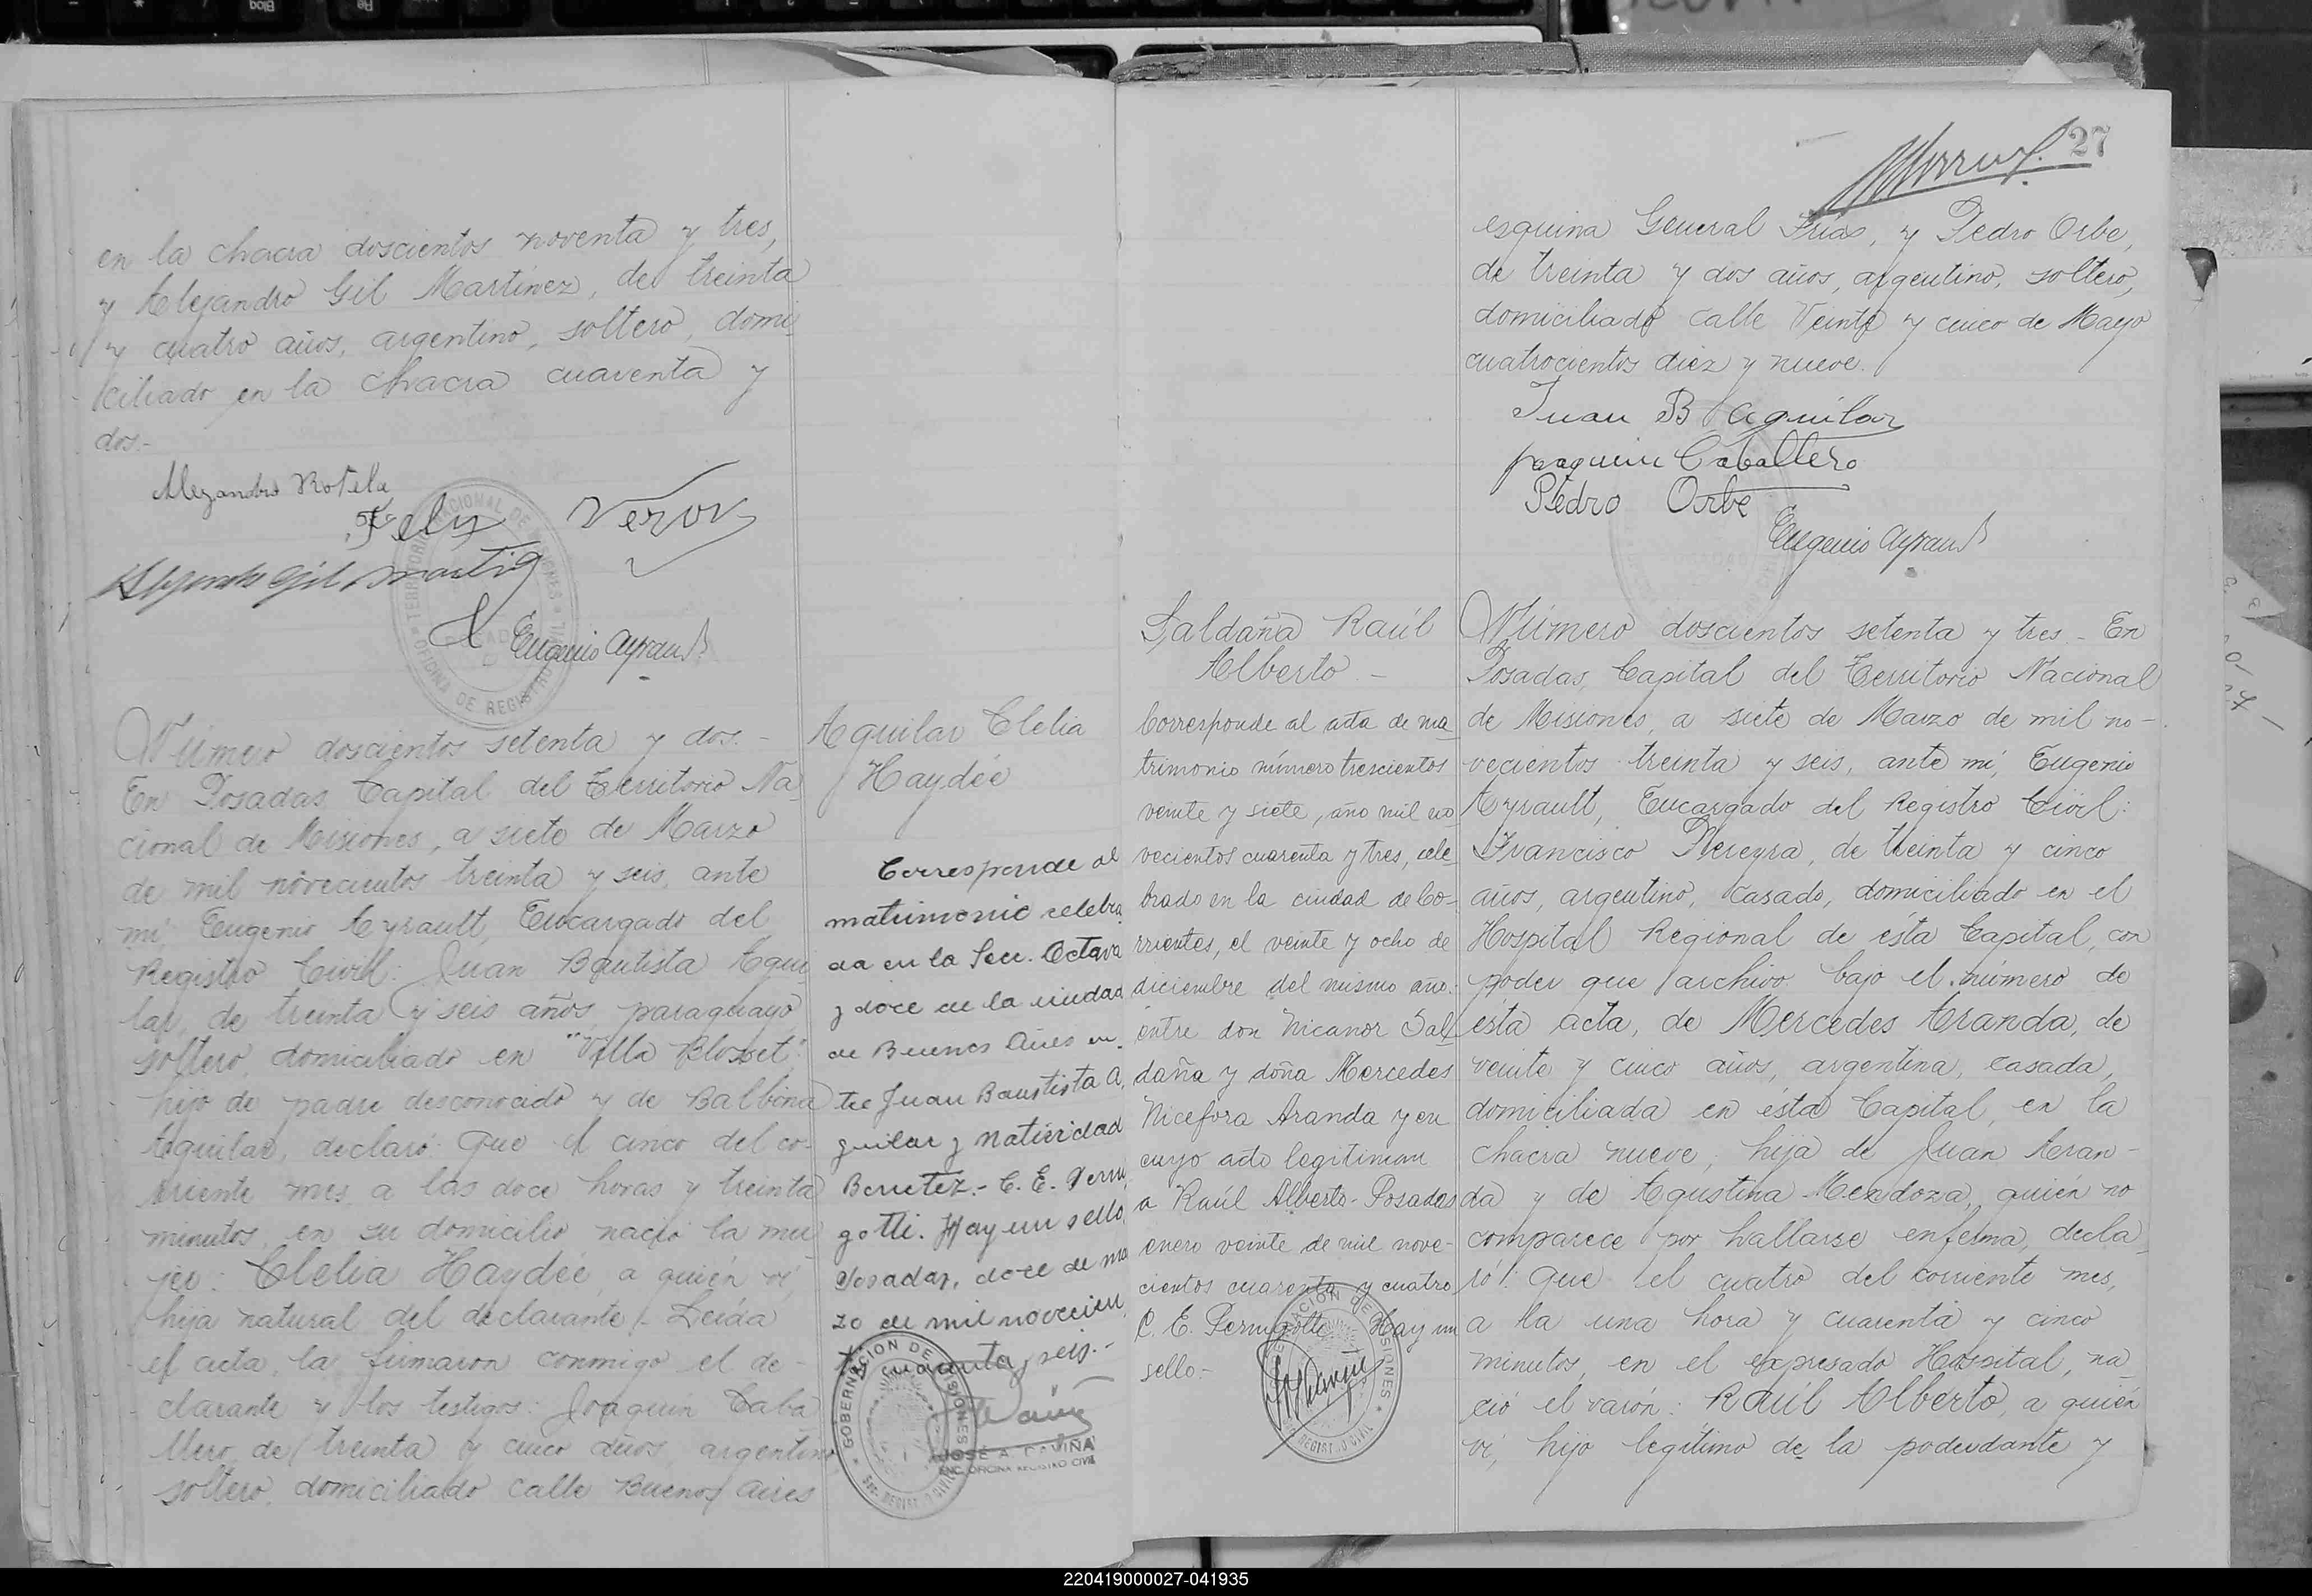 en la chacra doscientos noventa y tres,
y Alejandro Gil Martínez, de treinta
y cuatro años, argentino, soltero, domi-
ciliado en la chacra cuarenta y
dos.-
Alejandro Rotela
Felix Veron
Alejandro Gil Martinez
Eugenio Ayrault
TERRITORIO NACIONAL DE MISIONES
OFICINA DE REGISTRO CIVIL
Número doscientos setenta y dos.-
En Posadas, Capital del Territorio Na-
cional de Misiones, a siete de Marzo
de mil novecientos treinta y seis, ante
mí, Eugenio Ayrault, Encargado del
Registro Civil: Juan Bautista Agui
lar, de treinta y seis años, paraguayo,
soltero, domiciliado en "Villa Blosset",
hijo de padre desconocido y de Balbina
Aguilar, declaró: Que el cinco del co-
rriente mes, a las doce horas y treinta
minutos, en su domicilio nació la mu
jer: Clelia Haydée, a quién ví,
hija natural del declarante. Leída
el acta, la firmaron conmigo el de-
clarante y los testigos: Joaquin Caba
llero, de treinta y cinco años, argentino
soltero, domiciliado calle Buenos Aires
Aguilar Clelia
Haydée
Corresponde al
matrimonio celebra
da en la Secc. Octava
y doce de la ciudad
de Buenos Aires en-
tre Juan Baustista A,
guilar y Natividad
Benetez.- C. E. Peru
gotti. Hay un sello,
Posadas, doce de ma
zo de mil novecien
tos cuarenta y seis.-
GOBERNACION DE MISIONES
REGISTRO CIVIL
JOSÉ A. DAVIÑA
ENC. OFICINA REGISTRO CIVIL
27
esquina General Frías, y Pedro Orbe,
de treinta y dos años, argentino, soltero,
domiciliado calle Veinte y cinco de Mayo
cuatrocientos diez y nueve.
Juan B Aguilar
Joaquin Caballero
Pedro Orbe
Eugenio Ayrault
Saldaña Raúl
Alberto -
Corresponde al acta de ma
trimonio número trescientos
veinte y siete, año mil no
vecientos cuarenta y tres, cele
brado en la ciudad de Co-
rrientes, el veinte y ocho de
diciembre del mismo año.-
entre don Nicanor Sal
daña y doña Mercedes
Nicefora Aranda y en
cuyo acto legitiman
a Raúl Alberto- Posadas
enero veinte de mil nove-
cientos cuarenta y cuatro
C. E. Perugotti Hay un
sello.-
GOBERNACION DE MISIONES
REGISTRO CIVIL
Número doscientos setenta y tres.- En
Posadas, Capital del Territorio Nacional
de Misiones, a siete de Marzo de mil no-
vecientos treinta y seis, ante mí, Eugenio
Ayrault, Encargado del Registro Civil:
Francisco Pereyra, de treinta y cinco
años, argentino, casado, domiciliado en el
Hospital Regional de ésta Capital, con
poder que archivo bajo el número de
ésta acta, de Mercedes Aranda, de
veinte y cinco años, argentina, casada,
domiciliada en ésta Capital, en la
chacra nueve, hija de Juan Aran-
da y de Agustina Mendoza, quién no
comparece por hallarse enferma, decla
ró: Que el cuatro del corriente mes,
a la una hora y cuarenta y cinco
minutos, en el expresado Hospital, na
ció el varón: Raúl Alberto, a quién
ví, hijo legítimo de la poderdante y
220419000027-041935